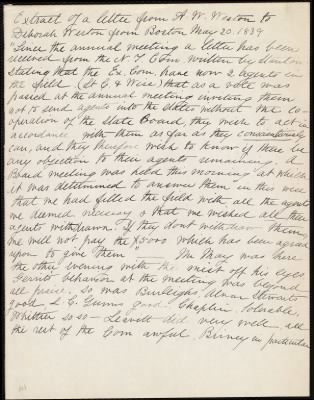 Extract of a letter from A. W. Weston to
Deborah Weston from Boston May 20. 1839
"Since the annual meeting a letter has been
received from the N.Y. Com. written by Stanton
stating that the Ex. Com. have now 2 agents in
the field (St. C. & Wise) that as a vote was
passed at the annual meeting inviting them
not to send agents into the states without the co-
operation of the State Board, they wish to act in
accordance with them as far as they conscientiously
can, and they therefore wish to know if there be
any objection to their agents remaining. A
Board meeting was held this morning at which
it was determined to answer them in this wise
that we had filled the field with all the agents
we deemed necessary & that we wished all their
agents withdrawn. If they dont withdraw them,
we will not pay the $5000 which has been agreed
upon to give them" — Mr May was here
the other evening with the mist off his eyes
Gerrits behavior at the meeting was beyond
all praise. So was Burleighs, Alvan Stewarts
good. L. C. Gunns good. Chaplin, tolerable,
Whittier so so — Leavitt did very well, all
the rest of the Com awful, Birney in particular